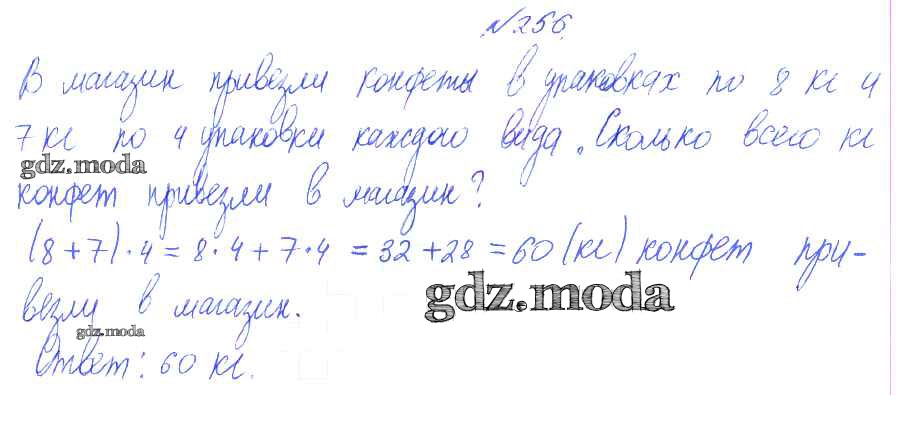 №256.
В магазин привезли конфеты в упаковках по 8 кг и
7 кг по 4 упаковки каждого вида. Сколько всего кг
gdz.moda
конфет привезли в магазин?
(8+7)·4=8·4+7·4=32+28=60(кг) конфет при-
везли в магазин.
gdz.moda
gdz.moda
Ответ: 60 кг.